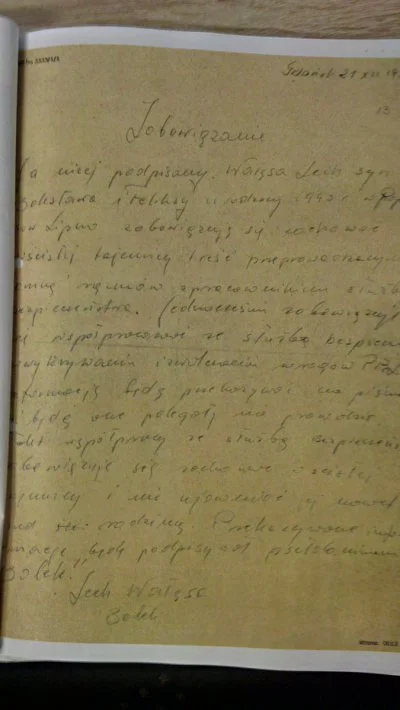 Gdańsk 21 XII 19
13
Zobowiązanie
Ja niżej podpisany. Wałęsa Lech syn
Bolesława i Feliksy urodzony 1943 r w
Lipno zobowiązuję się zachować
ścisłej tajemnicy treść
rozmów z pracownikami
bezpieczeństwa. Jednocześnie zobowiązuję
współpracować ze służbą
wykrywaniu i zwalczaniu wrogów PRL
informacje będę przekazywał na piśmie
będą one polegały na prawdzie
Fakt współpracy ze służbą
zobowiązuje się zachować
tajemnicy i nie ujawniać jej nawet
rodziną. Przekazywane
będę podpisywał pseudonimem
Bolek."
Lech Wałęsa
Bolek